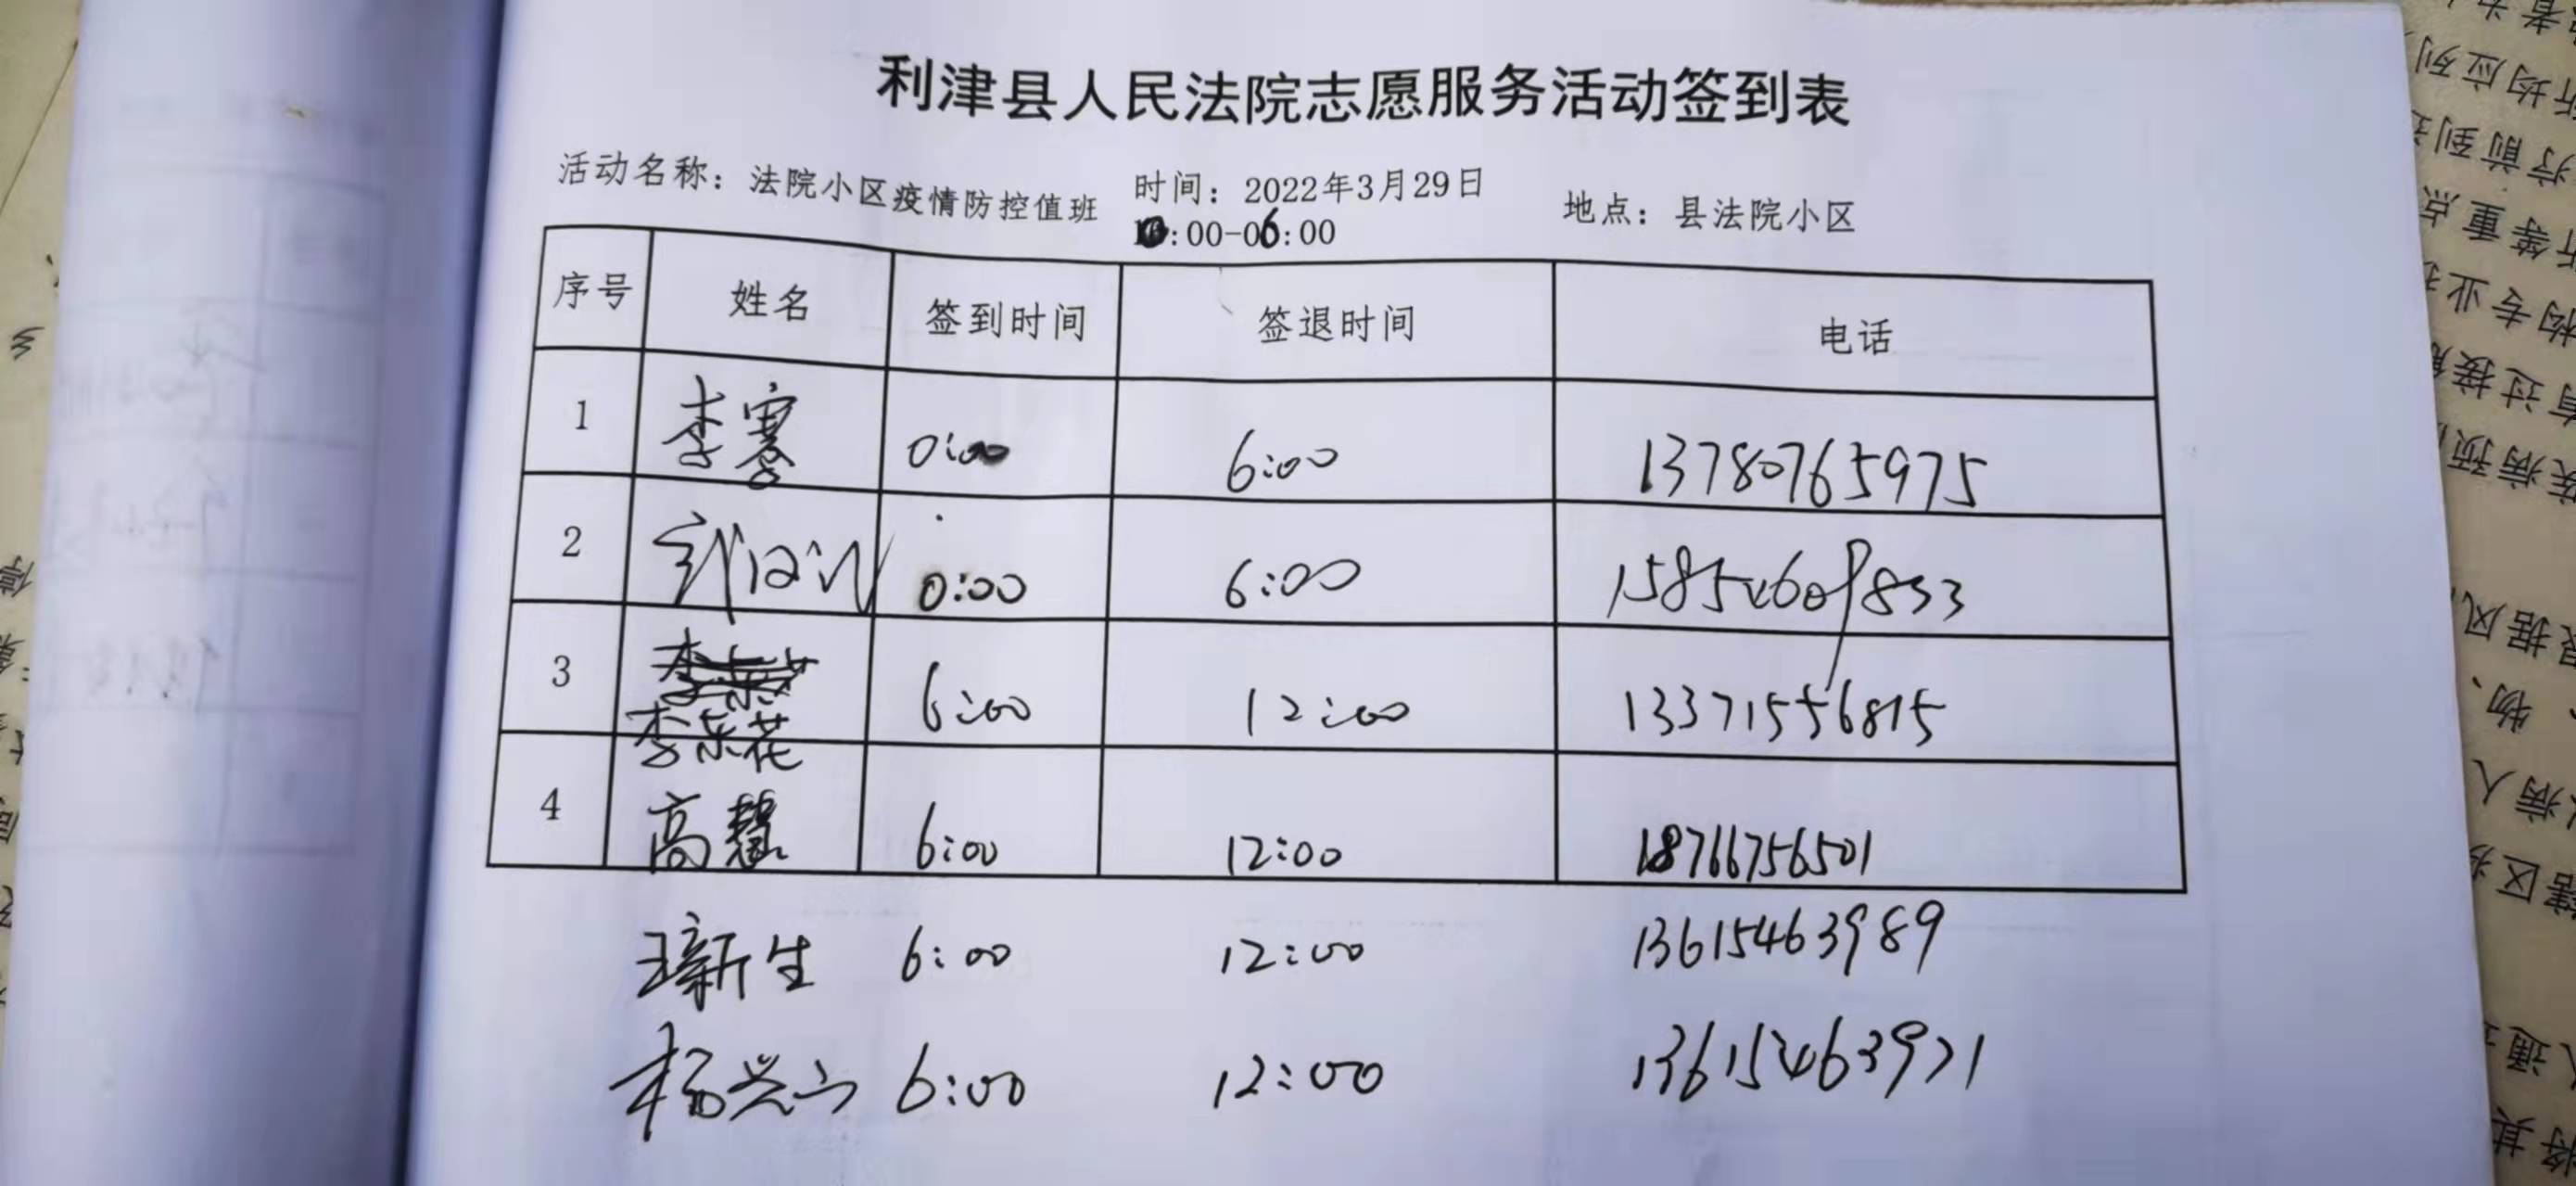 利津县人民法院志愿服务活动签到表
活动名称：法院小区疫情防控值班 时间：2022年3月29日 地点：县法院小区
:00-06:00
序号 姓名 签到时间 签退时间 电话
1 李謇 0:00 6:00 13780765975
2 0:00 6:00 15854609833
3 李荣花 6:00 12:00 13371556815
4 高慧 6:00 12:00 18766756501
王新生 6:00 12:00 13615463989
杨兴 6:00 12:00 13615463971